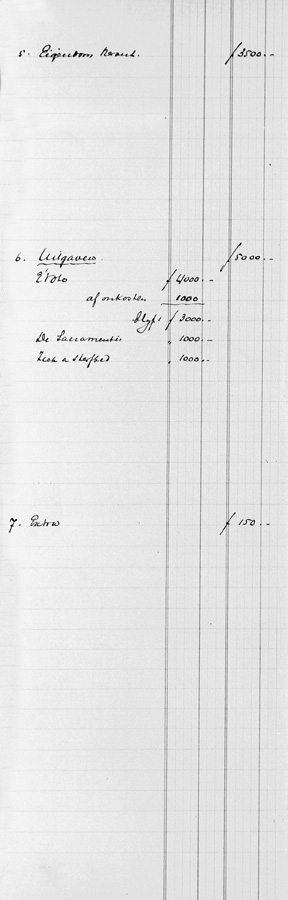 5. Eigendoms f 3500.-
6. Uitgaven f 5000.-
f 4000.-
af onkosten 1000
blyft f 3000.-
De Sacramentis " 1000.-
Ziek a sterfbed " 1000.-
7. Extra f 150.-